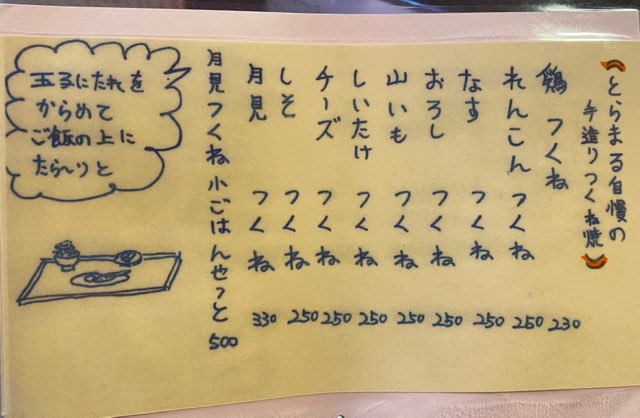 とらまる自慢の
手造りつくね焼
鶏つくね 230
れんこんつくね 250
なすつくね 250
おろしつくね 250
山いもつくね 250
しいたけつくね 250
チーズつくね 250
しそつくね 250
月見つくね 330
月見つくね小ごはんせっと 500
玉子にたれを
からめて
ご飯の上に
たら〜りと